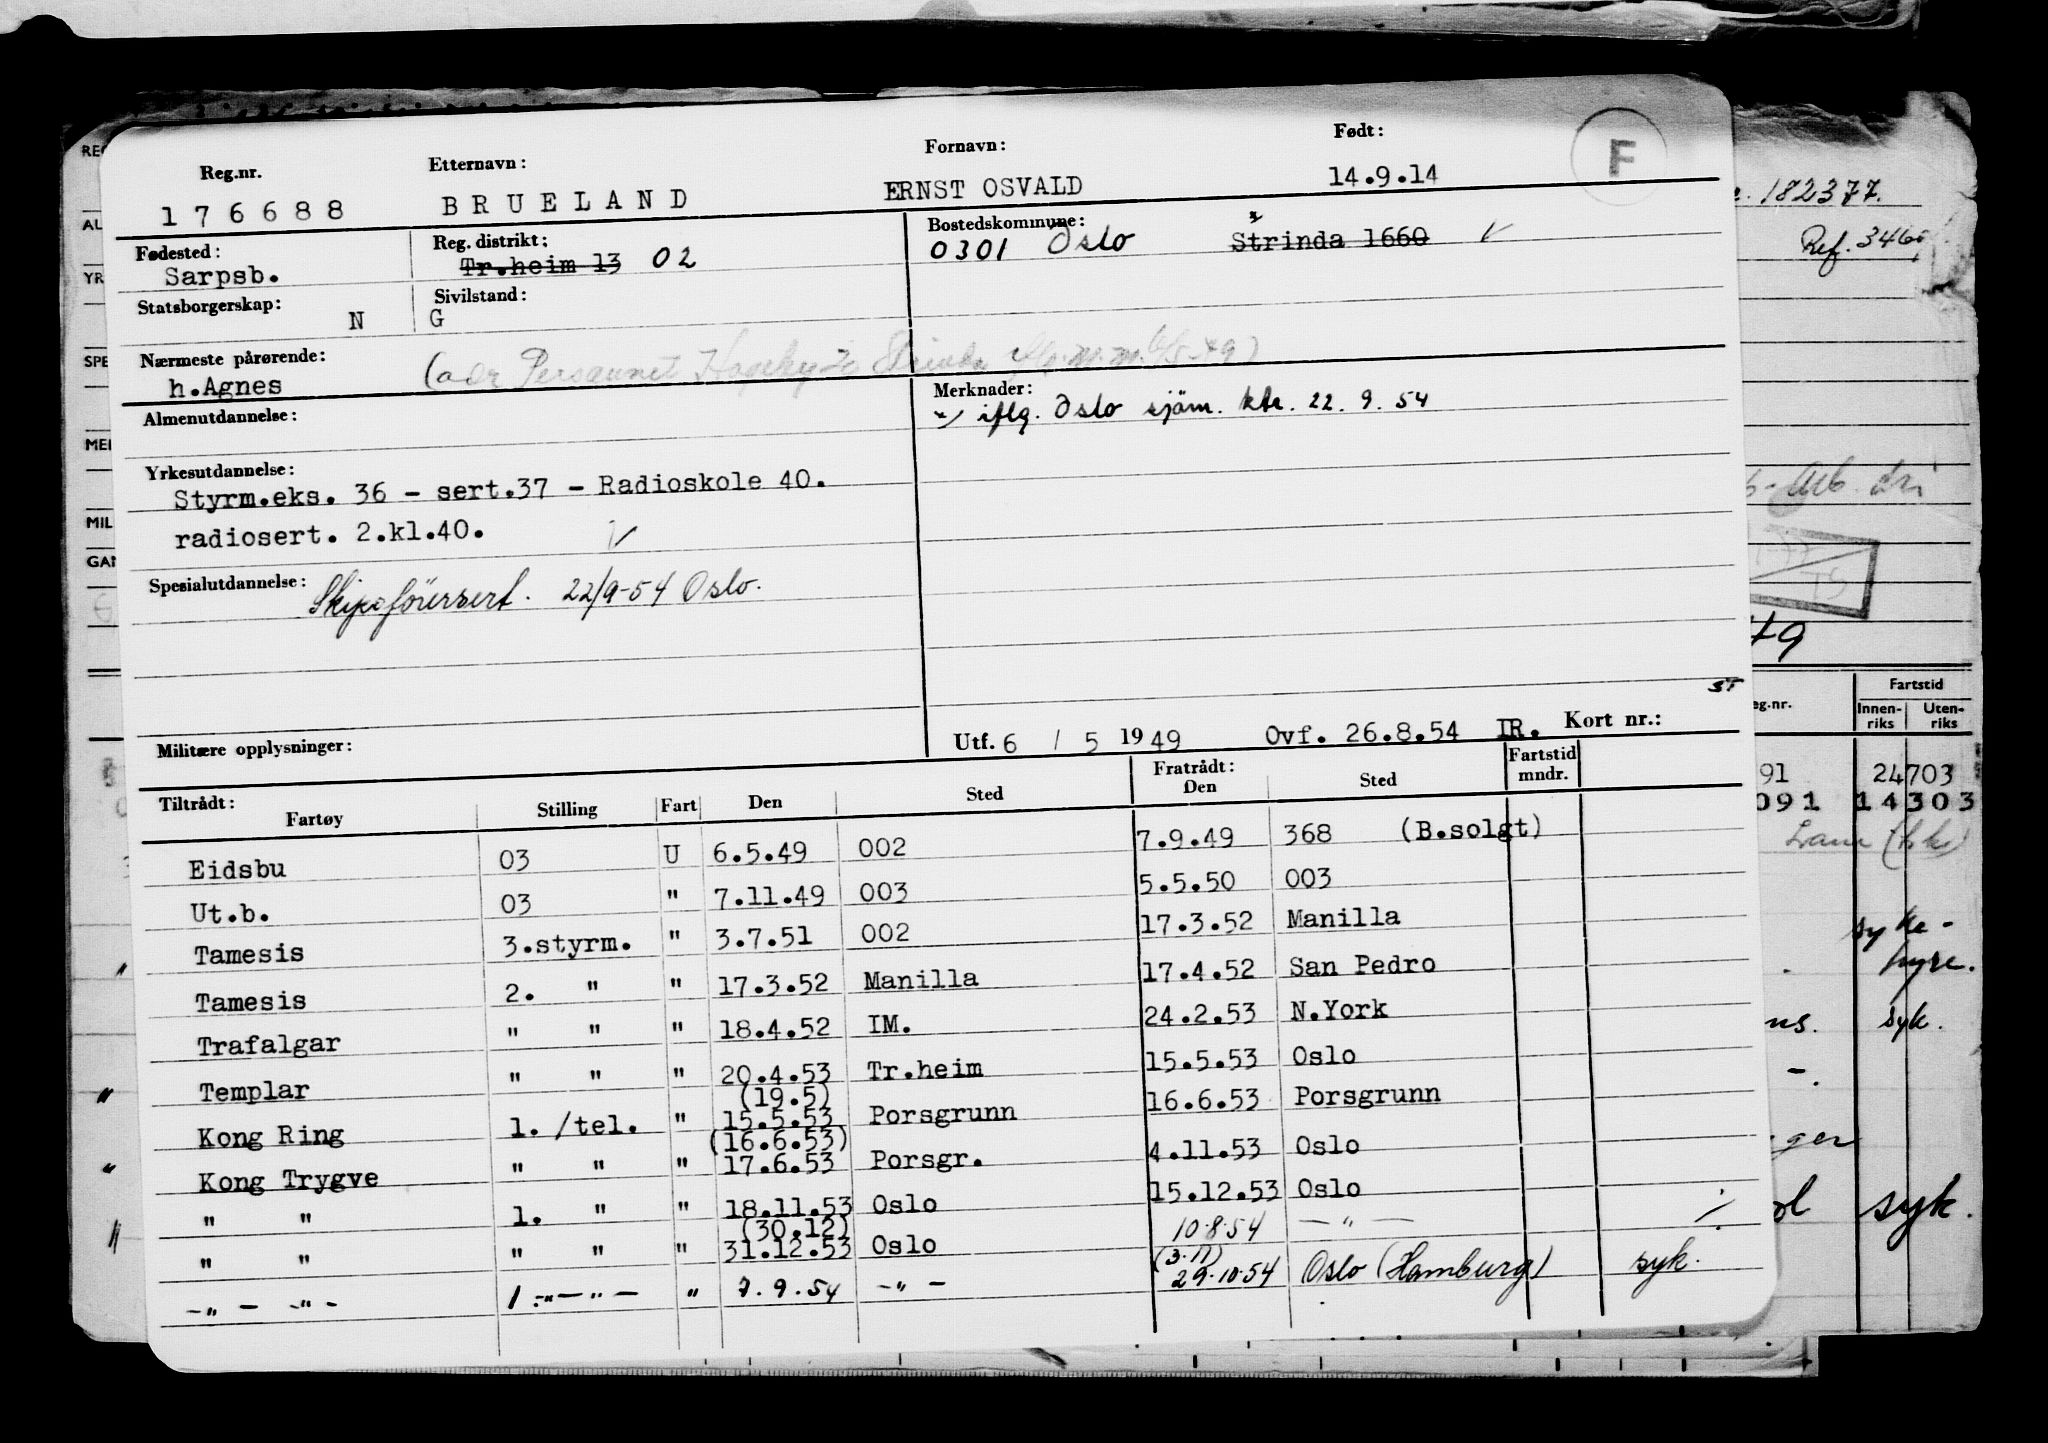 Reg.nr. Etternavn: Fornavn: Født: F
176688 BRUELAND ERNST OSVALD 14.9.14
Fødested: Reg. distrikt: Bostedskommune:
Sarpsb. Tr.heim 13 02 0301 Oslo Strinda 1660
Statsborgerskap: Sivilstand:
N G
Nærmeste pårørende:
h.Agnes
Almenutdannelse: Merknader:
iflg. Oslo sjøm. ktr. 22.9.54
Yrkesutdannelse:
Styrm.eks. 36 - sert.37 - Radioskole 40.
radiosert. 2.kl.40.
Spesialutdannelse: Skipsførersert. 22/9-54 Oslo.
ST
Militære opplysninger: Utf. 6 / 5 1949 Ovf. 26.8.54 IR. Kort nr.:
Tiltrådt: Fratrådt: Fartstid
Fartøy Stilling Fart Den Sted Den Sted mndr.
Eidsbu 03 U 6.5.49 002 7.9.49 368 (B.solgt)
Ut.b. 03 " 7.11.49 003 5.5.50 003
Tamesis 3.styrm. " 3.7.51 002 17.3.52 Manilla
Tamesis 2. " " 17.3.52 Manilla 17.4.52 San Pedro
Trafalgar " " " 18.4.52 IM. 24.2.53 N.York
Templar " " " 20.4.53 Tr.heim 15.5.53 Oslo
(19.5)
Kong Ring 1. /tel. " 15.5.53 Porsgrunn 16.6.53 Porsgrunn
(16.6.53)
Kong Trygve " " " 17.6.53 Porsgr. 4.11.53 Oslo
" " 1. " " 18.11.53 Oslo 15.12.53 Oslo
(30.12)
" " " " " 31.12.53 Oslo 10.8.54 - " -
(3.11)
-"- -"- 1.-"-"- " 7.9.54 -"- 29.10.54 Oslo (Hamburg) syk.
182377.
Ref. 346
49
eg.nr. Fartstid
Innenriks Utenriks
91 24703
091 14303
syke-
hyre.
ns. syk.
syk.